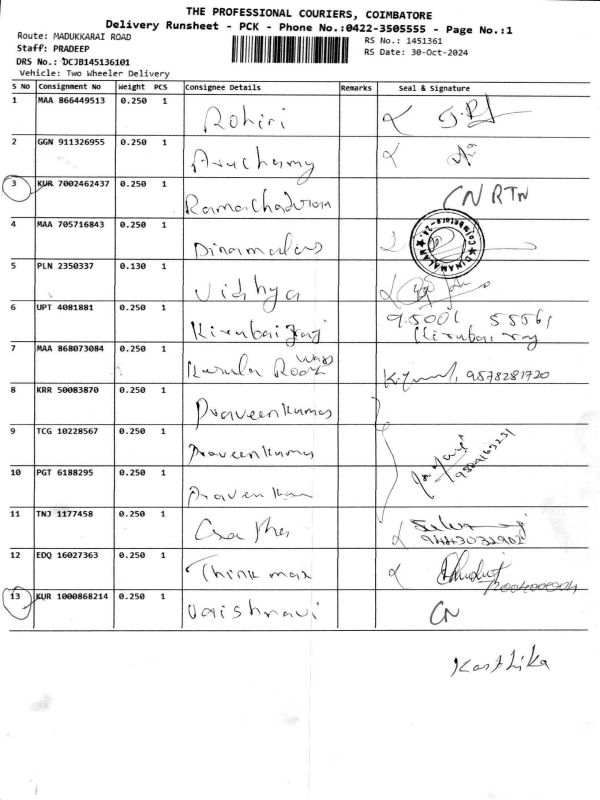 THE PROFESSIONAL COURIERS, COIMBATORE
Delivery Runsheet - PCK - Phone No.:0422-3505555 - Page No.:1
Route: MADUKKARAI ROAD
RS No.: 1451361
Staff: PRADEEP
RS Date: 30-Oct-2024
DRS No.: DCJB145136101
Vehicle: Two Wheeler Delivery
S No Consignment No Weight PCS Consignee Details Remarks Seal & Signature
1 MAA 866449513 0.250 1 Rohini
2 GGN 911326955 0.250 1 Aruchamy
3 KUR 7002462437 0.250 1 Ramachadran CN RTN
4 MAA 705716843 0.250 1 Dinamalar
DINAMALAR Coimbatore
5 PLN 2350337 0.130 1 Vidhya
6 UPT 4081881 0.250 1 Kirubairaj 95001 55561
Kirubairaj
7 MAA 868073084 0.250 1 9578281720
8 KRR 50083870 0.250 1 Praveenkumar
9 TCG 10228567 0.250 1 Praveenkumar
10 PGT 6188295 0.250 1
11 TNJ 1177458 0.250 1
9443032902
12 EDQ 16027363 0.250 1 Think max
13 KUR 1000868214 0.250 1 Vaishnavi CN
Karthika